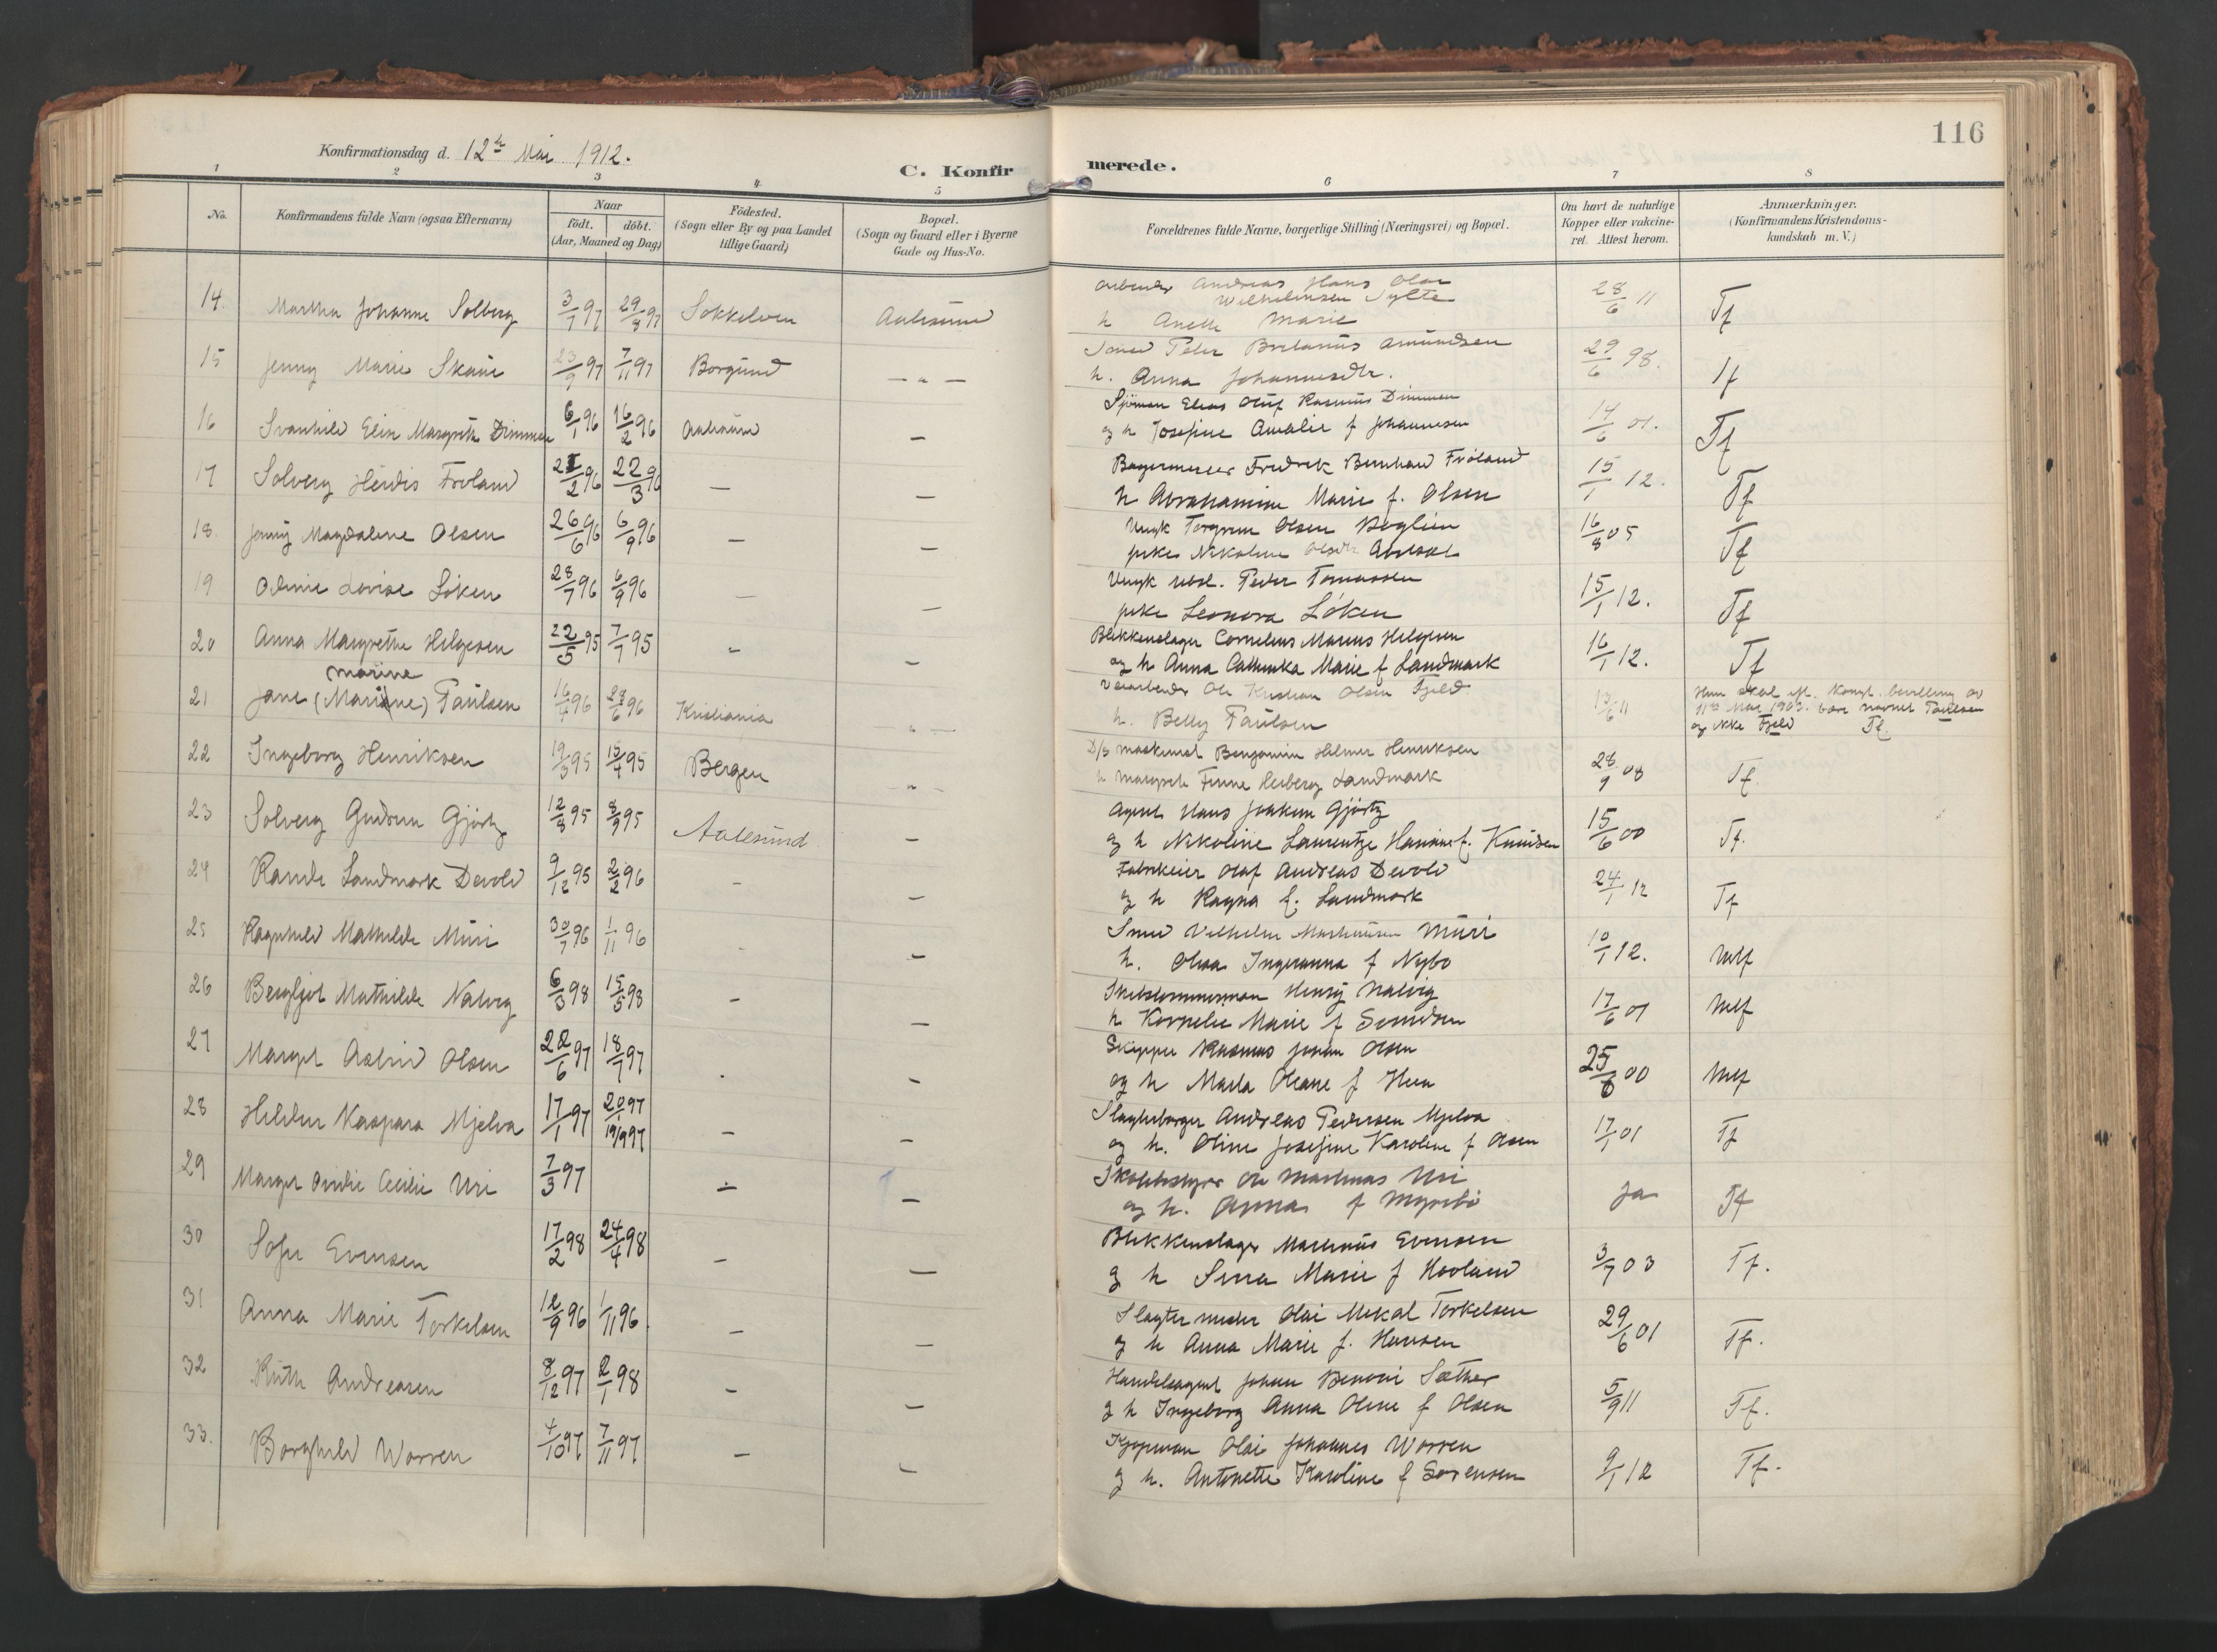 116
Konfirmationsdag d. 12te Mai 1912.
C. Konfirmerede.
1 2 3 4 5 6 7 8
No.
Konfirmandens fulde Navn (ogsaa Efternavn)
Naar
födt. döbt.
(Aar, Maaned og Dag)
Födested.
(Sogn eller By og paa Landet
tillige Gaard)
Bopæl.
(Sogn og Gaard eller i Byerne
Gade og Hus-No.
Forældrenes fulde Navne, borgerlige Stilling (Næringsvei) og Bopæl.
Om havt de naturlige
Kopper eller vakcine-
ret. Attest herom.
Anmærkninger.
(Konfirmandens Kristendoms-
kundskab m. V.)
14. Martha Johanne Solberg 3/7 97 29/8 97 Sökkelven Aalesund
Arbeider Andreas Hans Olar
Wilhelmsen Sylte
h Anette Marie
28/6 11 Tf
15 Jenny Marie Skaue 23/9 97 7/11 97 Borgund — " —
Smed Peter Amundsen
h. Anna Johannesdtr.
29/6 98. Tf
16 Svanhild Elin Margrete Dimmen 6/1 96 16/2 96 Aalesund —
Sjöman Elias Oluf Rasmus Dimmen
og h Josefine Amalie f Johannesen
14/6 01. Tf
17 Solveig Herdis Fröland 21/2 96 22/3 96 — —
Bagermester Fredrik Bernhard Fröland
h Abrahamine Marie f. Olsen
15/1 12. Tf
18. Jenny Magdalene Olsen 26/6 96 6/9 96 — —
Ungk Torgrim Olsen
pike Nikoline Olsdtr
16/8 05 Tf
19 Lovise Löken 28/7 96 6/9 96 — —
Ungk Peder Tomassen
pike Leonora Löken
15/1 12. Tf
20 Anna Margrethe Helgesen 22/5 95 7/7 95 — —
Blikkenslager Cornelius Marius Helgesen
og h Anna Cathinka Marie f Landmark
16/1 12. Tf
marine
21 Jane (Marine) Paulsen 16/4 96 28/6 96 Kristiania " —
Ole Kristian Olsen Fjeld
h. Betty Paulsen
13/6 11
Hun skal efl. Kongl. bevilling av
11te Mai 1903. bære navnet Paulsen
og ikke Fjeld Tf.
22 Ingeborg Henriksen 19/3 95 15/4 95 Bergen — " —
D/S maskinist Benjamin Helmer Henriksen
h Margrete Finne Herberg Landmark
28/9 08 Tf.
23 Solveig Gudrun Gjörtz 12/8 95 8/9 95 Aalesund —
Agent Hans Joakim Gjörtz
og h Nikoline Laurentze f. Knudsen
15/6 00 Tf.
24 Randi Landmark Devold 9/12 95 2/2 96 — —
Fabrikeier Olaf Andreas Devold
og h Ragna f. Landmark
24/1 12 Tf
25 Ragnhild Mathilde Muri 30/7 96 1/11 96 —
Smed Vilhelm Muri
h. Olsa f Nybo
10/1 12. Mtf
26 Bergljot Mathilde Natvig 6/3 98 15/5 98 — —
Skibstømmerman Henry Natvig
h Kornelie Marie f Svendsen
17/6 01 Mtf
27 Margit Astrid Olsen 22/6 97 18/7 97 . —
Skipper Rasmus Johan Olsen
og h Marta Oleane f
25/6 00 Mtf
28 Kaspara Mjelva 17/1 97 20/1 97 19/9 97 — —
Andreas Pedersen Mjelva
og h. Oline Josefine Karoline f Olsen
17/1 01 Tf
29 Margit Cecilie Uri 7/3 97 — —
Skolebestyrer Ole Martinus Uri
og h. Anna f Myrebö
Ja Tf
30 Sofie Evensen 17/2 98 24/4 98 — —
Blikkenslager Martinus Evensen
og h Sina Marie f Hovland
3/7 03 Tf.
31 Anna Marie Torkelsen 12/9 96 1/11 96. — —
Slagtermester Olai Mikal Torkelsen
og h Anna Marie f. Hansen
29/6 01 Tf.
32 Ruth Andreasen 8/12 97 2/1 98 — —
Handelsagent Johan Benoni Sæther
og h Ingeborg Anna Oline f Olsen
5/9 11 Tf.
33. Borghild Worren 4/10 97 7/11 97 — —
Kjøpman Olai Johannes Worren
og h. Antonette Karoline f Sørensen
9/1 12 Tf.